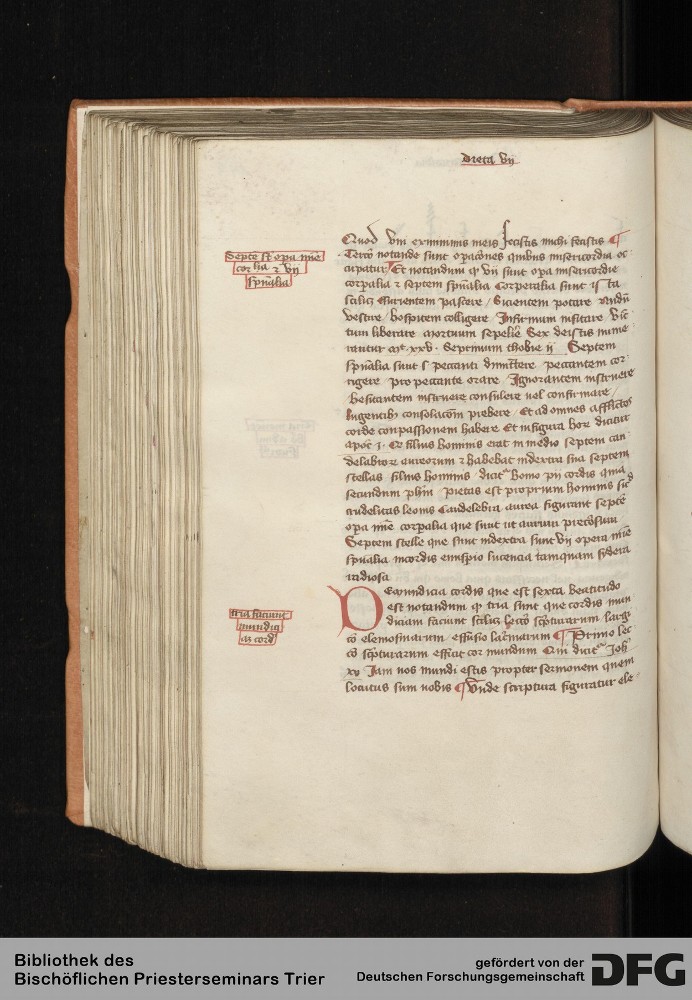 Dieta vij
Septē st̄ opa mīe
corꝑalia ⁊ vij
spūalia
Quod vni ex minimis meis fecistis michi fecistis ¶
Tercō notande sunt opacōnes quibus misericordia oc
cupatur ¶ Et notandum ꝙ vij sunt opa misericordie
corpalia ⁊ septem spūalia Corperalia sunt is ta
scilicꝫ Esurientem pascere / Sicientem potare nudū
vestire / hospitem colligere / Infirmum visitare Vic
tum liberare mortuum sepelire Sex de istis nume
rantur mt̄ xxv · Septimum thobie ij Septem
spūalia sunt s peccanti dimittere peccantem cor
rigere pro peccante orare / Ignorantem instruere
hesitantem instruere consulere vel confirmare /
lugentibꝫ consolacōm prebere / Et ad omnes afflictos
corde conpassionem habere Et in figura hoꝝ dicitur
apoc̄ j · Et filius hominis erat in medio septem can
delabroꝝ aureorum ⁊ habebat in dextra sua septem
stellas filius hominis / dicitᷣ homo pij cordis quia
secundum phm̄ pietas est proprium hominis sic̄
crudelitas leonis Candelebra aurea figurant septē
opa mīe corpalia que sunt ut aurum preciosum
Septem stelle que sunt in dextra sunt vij opera mīe
spūalia in cordis emispio lucencia tamquam sydera
radiosa
De mundicia cordis que est sexta beatitudo
est notandum ꝙ tria sunt que cordis mun
diciam faciunt scilicꝫ lectō scͥpturarum largi
tria faciunt
mundici
am cordis
tō elemosinarum effusio lacrimarum ¶ Primo lec
tō scͥpturarum efficit cor mundum Qm̄ dicitᷣ Joh̄
xv Jam vos mundi estis propter sermonem quem
locutus sum vobis ¶ Vnde scriptura figuratur ele-
Bibliothek des
Bischöflichen Priesterseminars Trier
gefördert von der
Deutschen Forschungsgemeinschaft
DFG